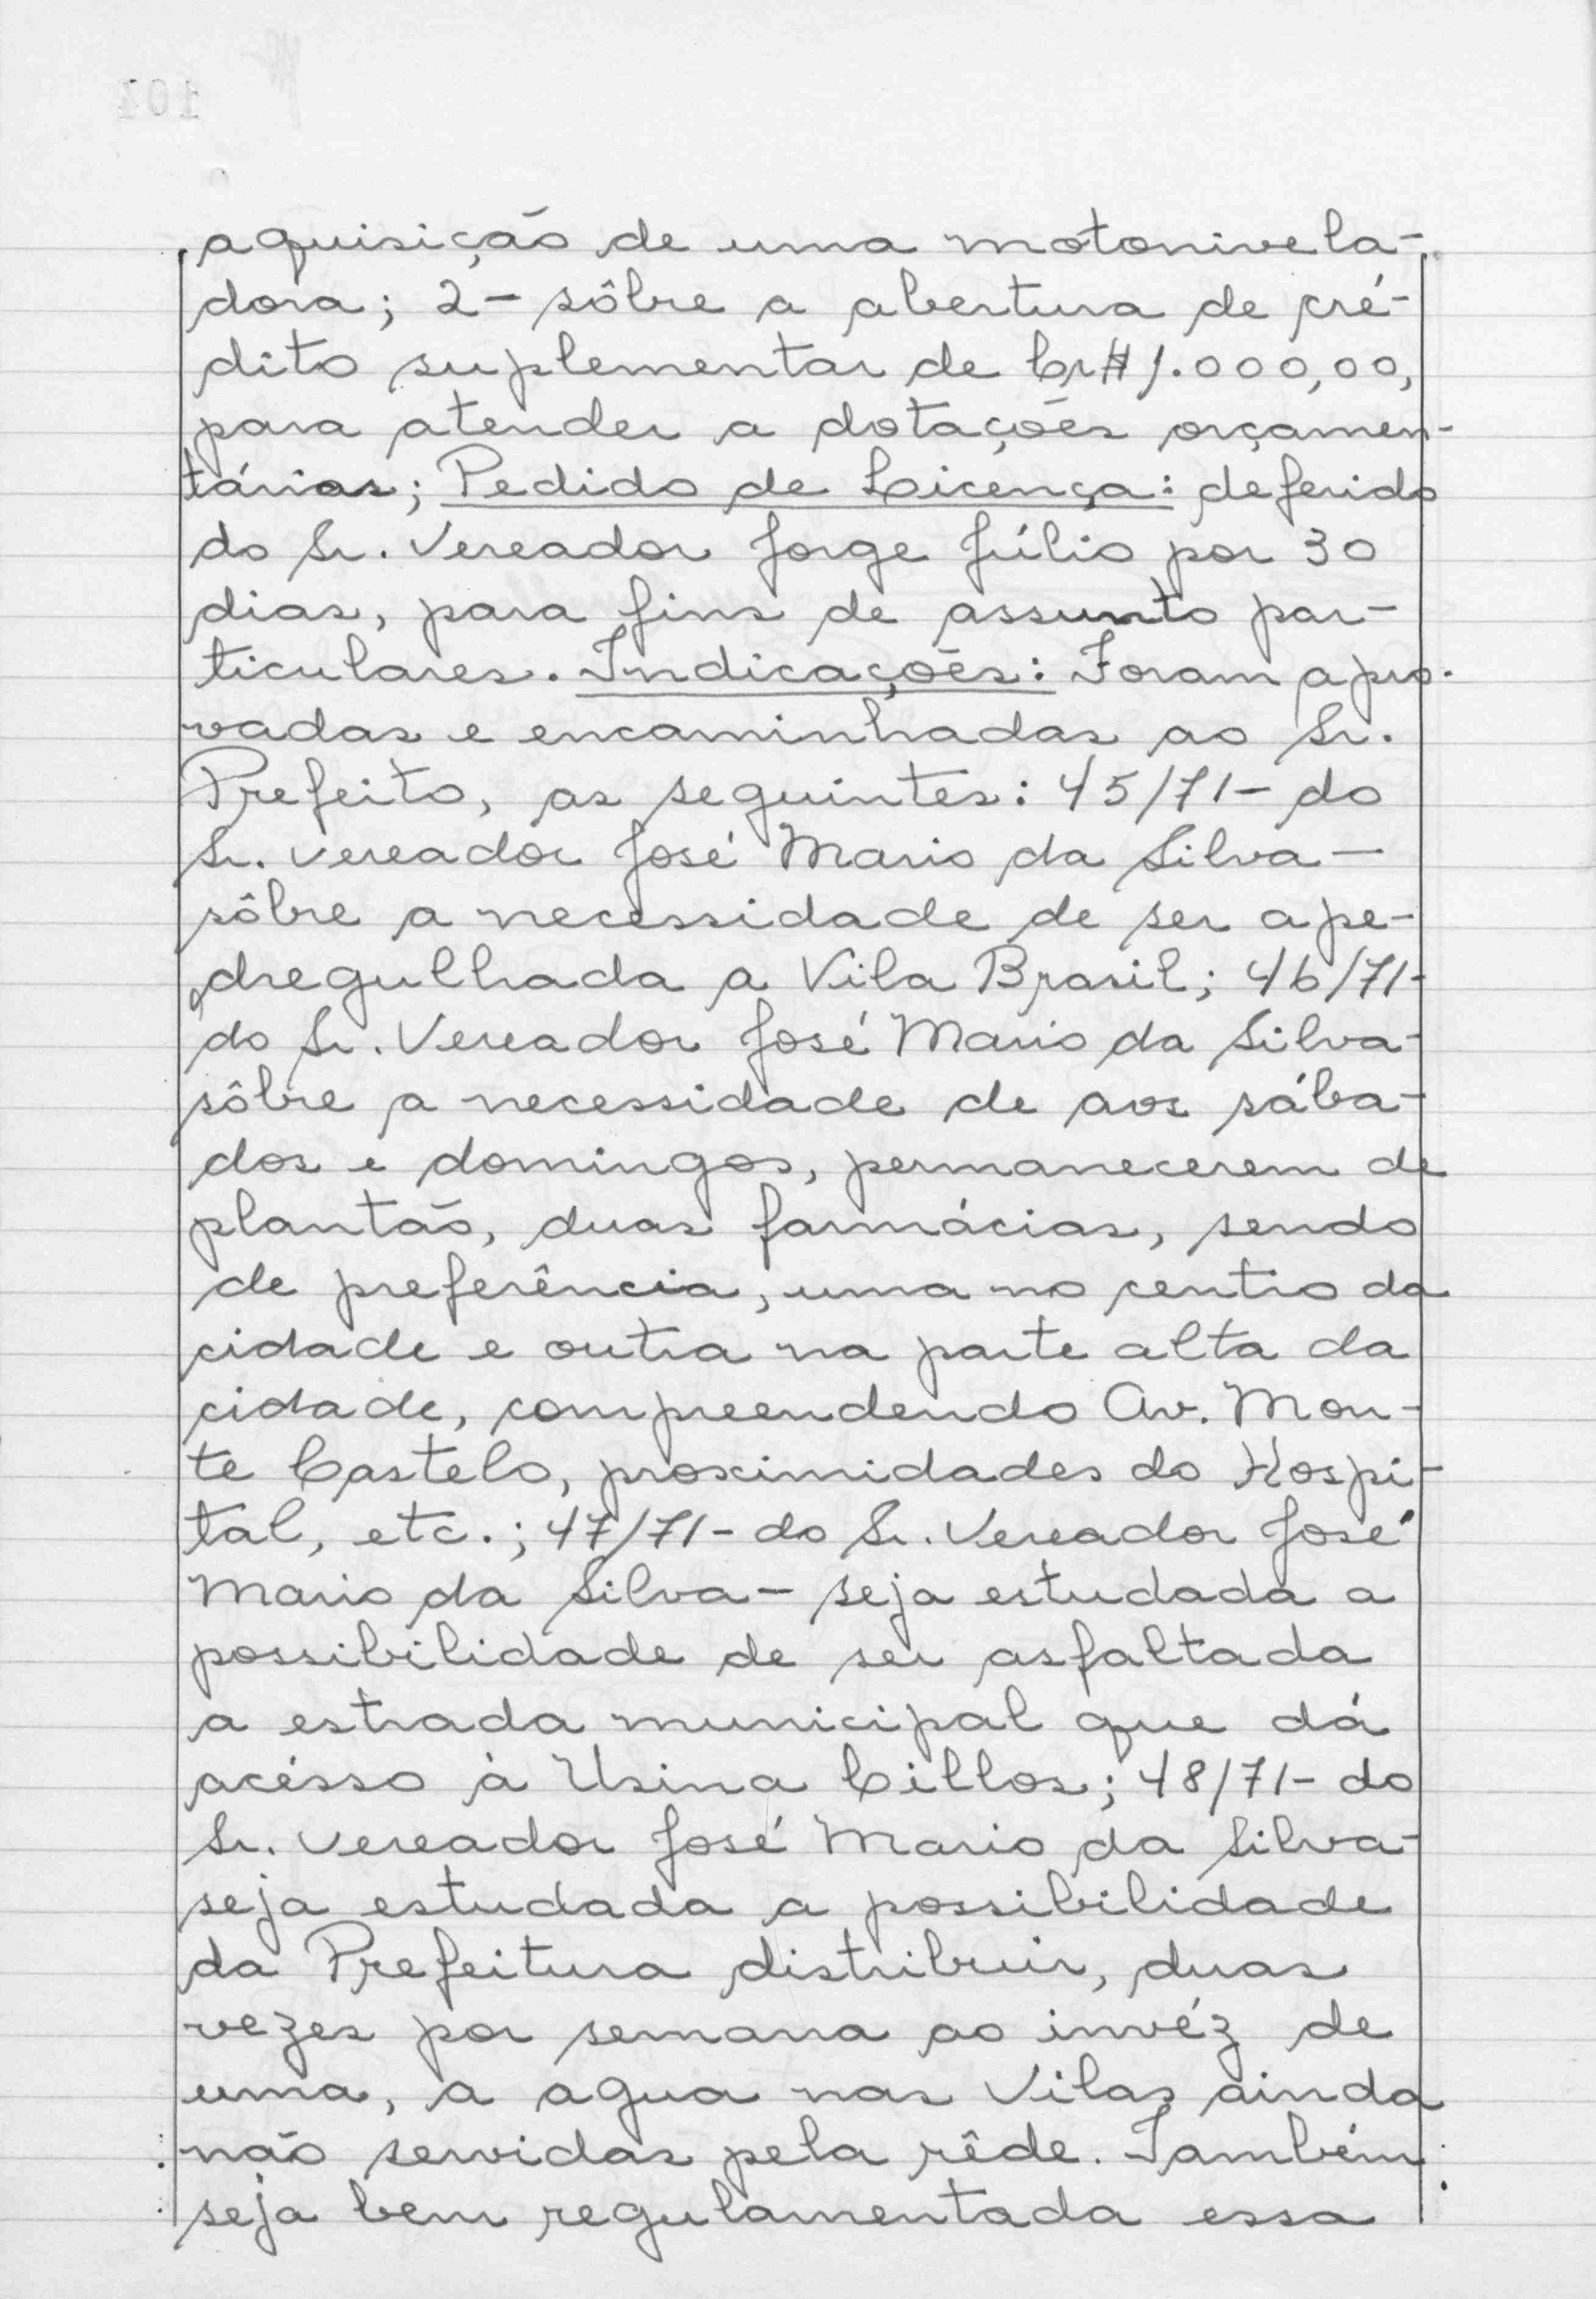 aquisição de uma motonivela-
dora; 2- sôbre a abertura de cré-
dito suplementar de Cr$ 1.000,00,
para atender a dotações orçamen-
tárias; Pedido de Licença: deferido
do Sr. Vereador Jorge Júlio por 30
dias, para fins de assunto par-
ticulares. Indicações: Foram apro-
vadas e encaminhadas ao Sr.
Prefeito, as seguintes: 45/71- do
Sr. Vereador José Mario da Silva -
sôbre a necessidade de ser ape-
dregulhada a Vila Brasil; 46/71-
do Sr. Vereador José Mario da Silva-
sôbre a necessidade de aos sába-
dos e domingos, permanecerem de
plantão, duas farmácias, sendo
de preferência, uma no centro da
cidade e outra na parte alta da
cidade, compreendendo Av. Mon-
te Castelo, proximidades do Hospi-
tal, etc.; 47/71- do Sr. Vereador José
Mario da Silva - seja estudada a
possibilidade de ser asfaltada
a estrada municipal que dá
acésso à Usina Cillos; 48/71- do
Sr. Vereador José Mario da Silva-
seja estudada a possibilidade
da Prefeitura distribuir, duas
vezes por semana ao invéz de
uma, a agua nas Vilas ainda
não servidas pela rêde. Também
seja bem regulamentada essa